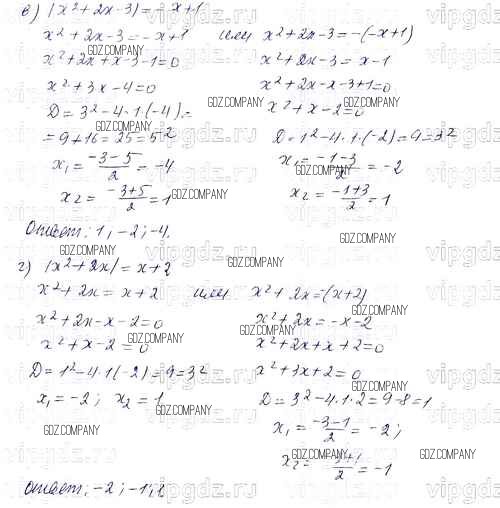 в) |x² + 2x - 3| = - x + 1
x² + 2x - 3 = - x + 1 или x² + 2x - 3 = -(-x+1)
x² + 2x + x - 3 - 1 = 0 x² + 2x - 3 = x - 1
x² + 3x - 4 = 0 x² + 2x - x - 3 + 1 = 0
D = 3² - 4·1·(-4) = x² + x - 2 = 0
= 9 + 16 = 25 = 5² D = 1² - 4·1·(-2) = 9 = 3²
x₁ = (-3-5)/2 = -4 x₁ = (-1-3)/2 = -2
x₂ = (-3+5)/2 = 1 x₂ = (-1+3)/2 = 1
Ответ: 1; -2; -4.
г) |x² + 2x| = x + 2
x² + 2x = x + 2 или x² + 2x = -(x+2)
x² + 2x - x - 2 = 0 x² + 2x = -x - 2
x² + x - 2 = 0 x² + 2x + x + 2 = 0
D = 1² - 4·1·(-2) = 9 = 3² x² + 3x + 2 = 0
x₁ = -2; x₂ = 1 D = 3² - 4·1·2 = 9 - 8 = 1
x₁ = (-3-1)/2 = -2;
x₂ = (-3+1)/2 = -1
Ответ: -2; -1; 1
GDZ.COMPANY
vipgdz.ru